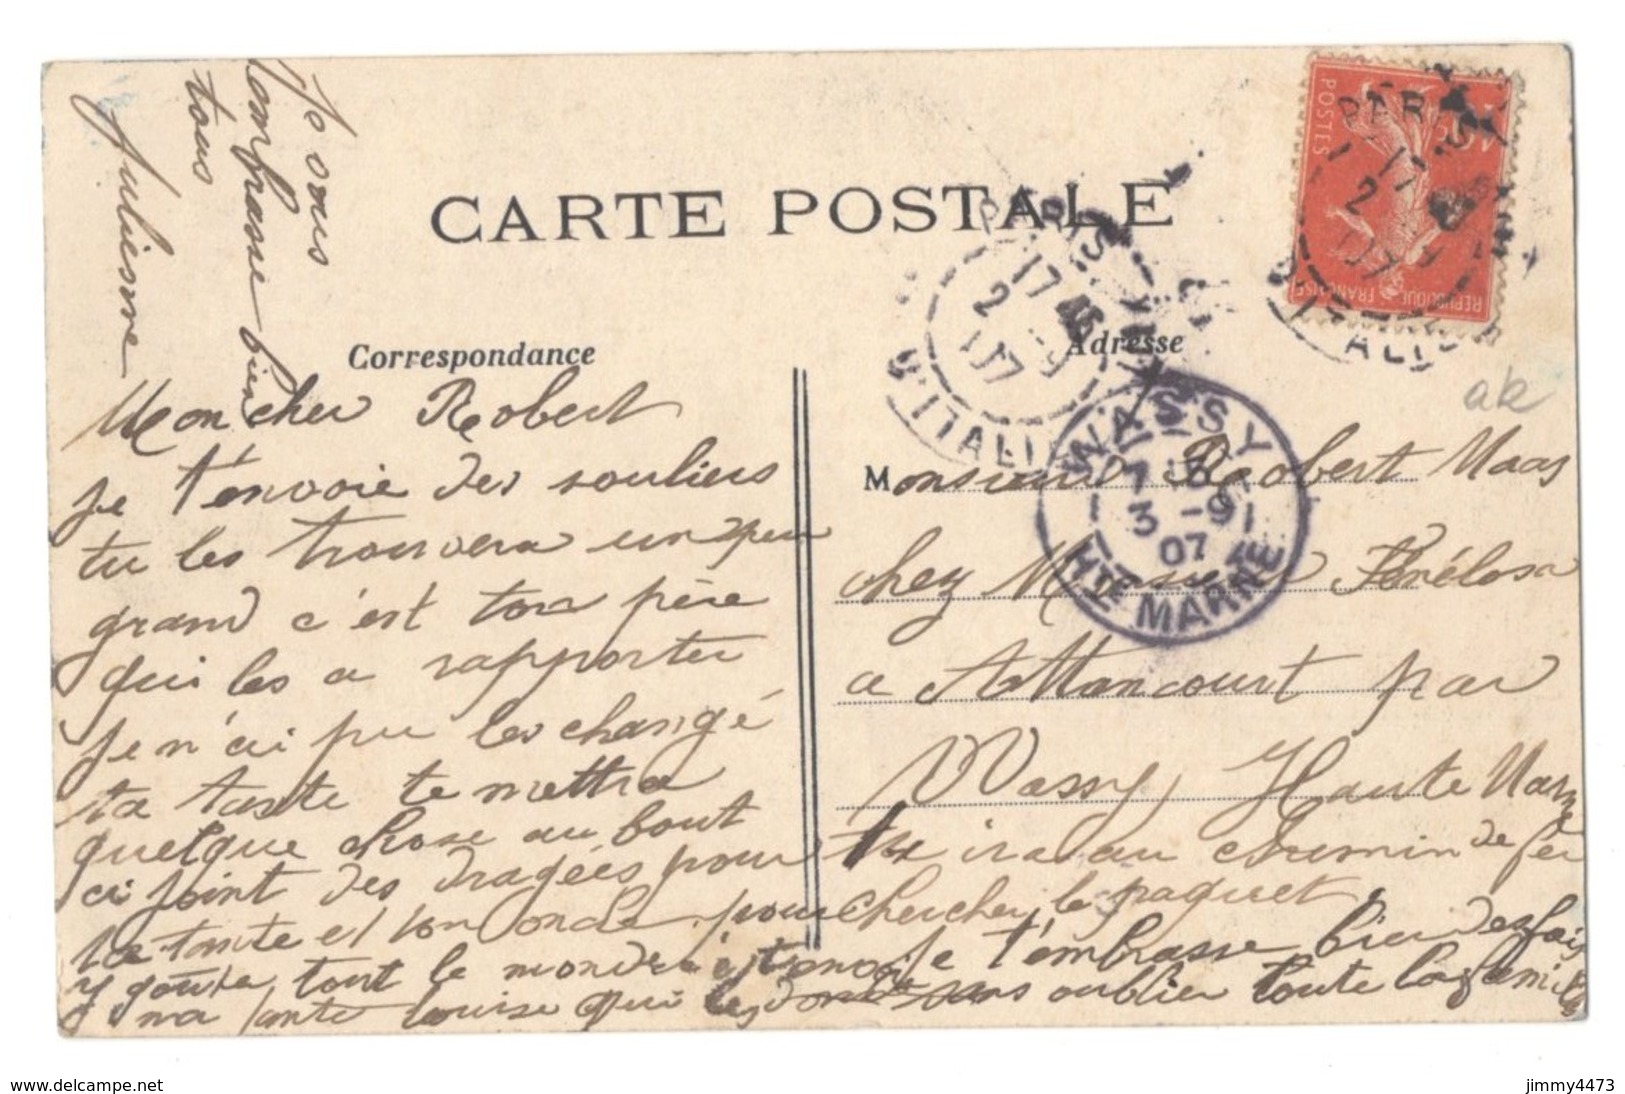 Je vous
l'embrasse bien
tous
Juliesme
CARTE POSTALE
Correspondance
Adresse
Mon cher Robert
je t'envoie des souliers
tu les trouvera un peu
grand c'est ton père
qui les a rapporter
je n'ai pu les changé
ta tante te mettra
quelque chose au bout
ci joint des dragées pour
ta tante et ton oncle pour
y goûta tout le monde
ma tante Louise qui les
Monsieur Robert Maas
chez Monsieur
a Attancourt par
Wassy Haute Marne
tu ira au chemin de fer
chercher le paquet
Je t'embrasse bien des fois
sans oublier toute la famille
PARIS
17
2 -9
07
D'ITALIE
WASSY
3 -9
07
HTE MARNE
POSTES
REPUBLIQUE FRANÇAISE
PARIS
17
2
07
D'ITALIE
ak
www.delcampe.net
jimmy4473